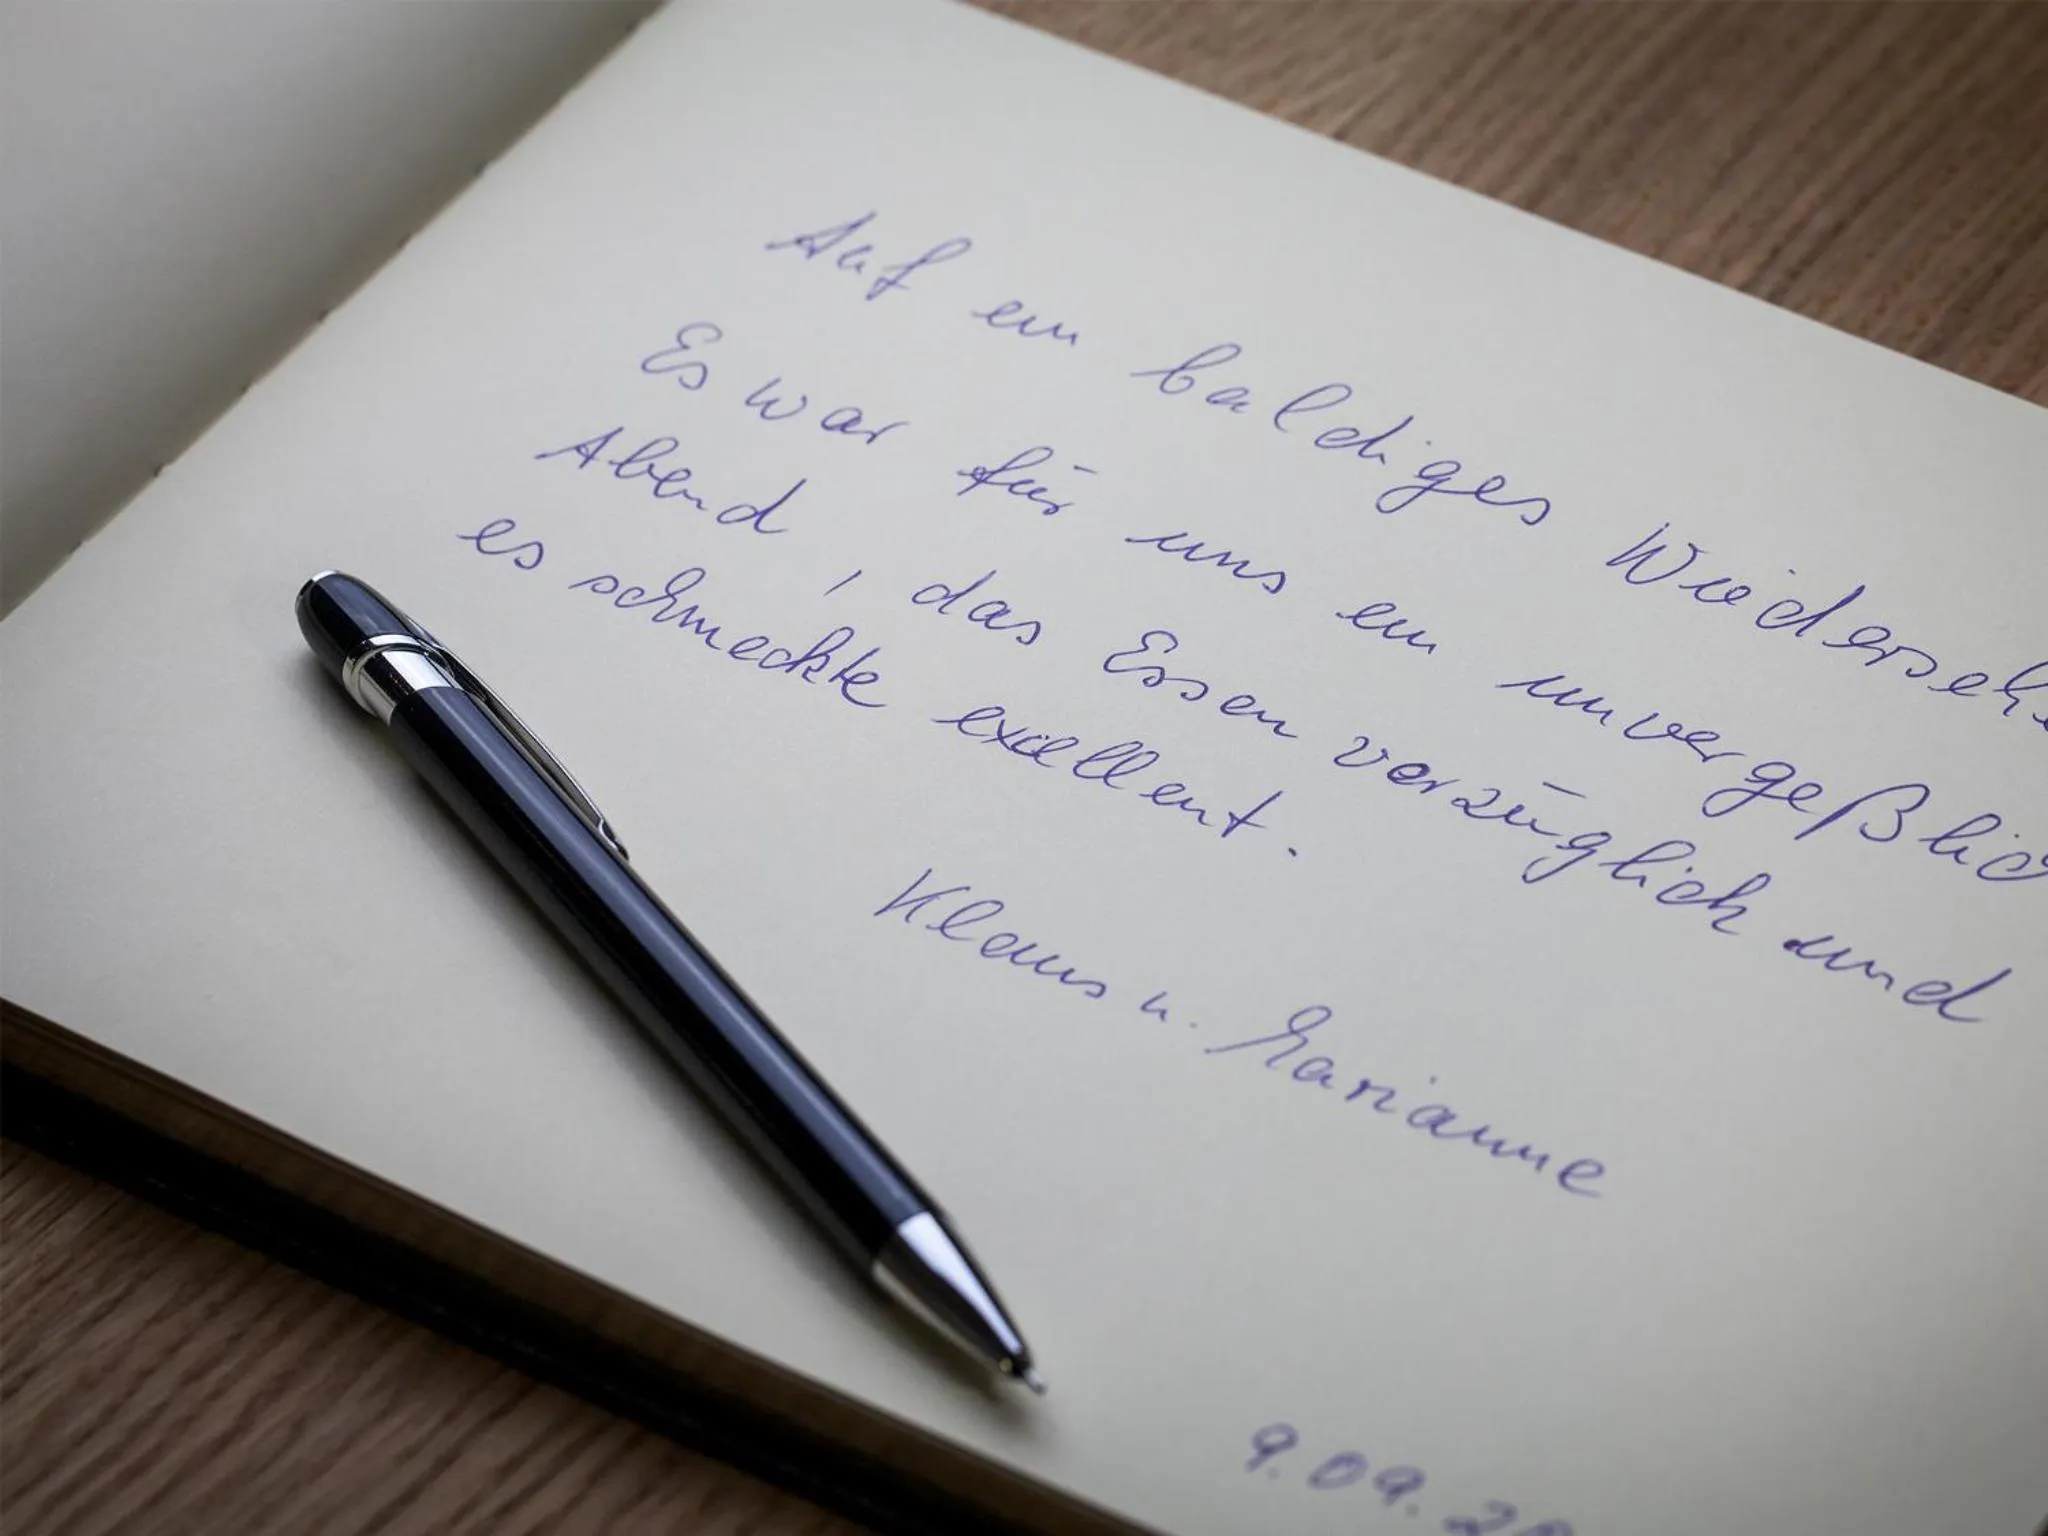 Auf ein baldiges Wiederseh
Es war für uns ein unvergeßlic
Abend, das Essen verzüglich und
es schmeckte exellent.
Klaus u. Marianne
9.09.20